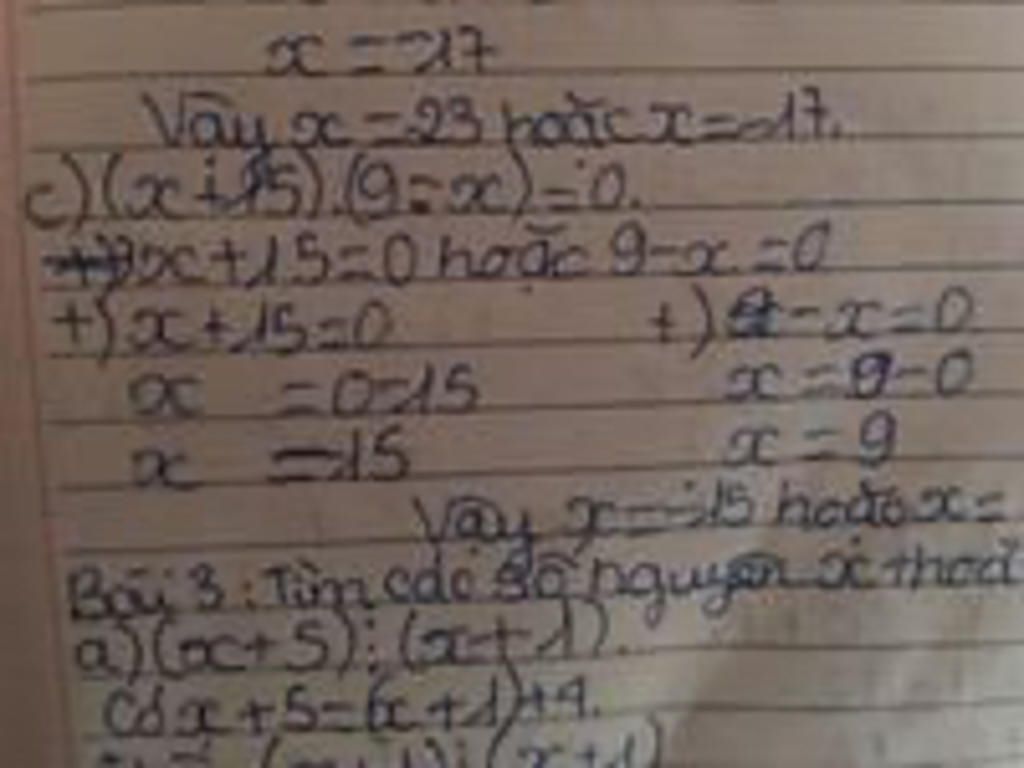 x = -17
Vậy x = 23 hoặc x = -17.
c) (x + 15).(9 - x) = 0.
x + 15 = 0 hoặc 9 - x = 0
+) x + 15 = 0 +) 9 - x = 0
x = 0 - 15 x = 9 - 0
x = -15 x = 9
Vậy x = -15 hoặc x =
Bài 3: Tìm các số nguyên x thoả
a) (x + 5) ⋮ (x + 1).
Có x + 5 = (x + 1) + 4.
(x + 1) ⋮ (x + 1)